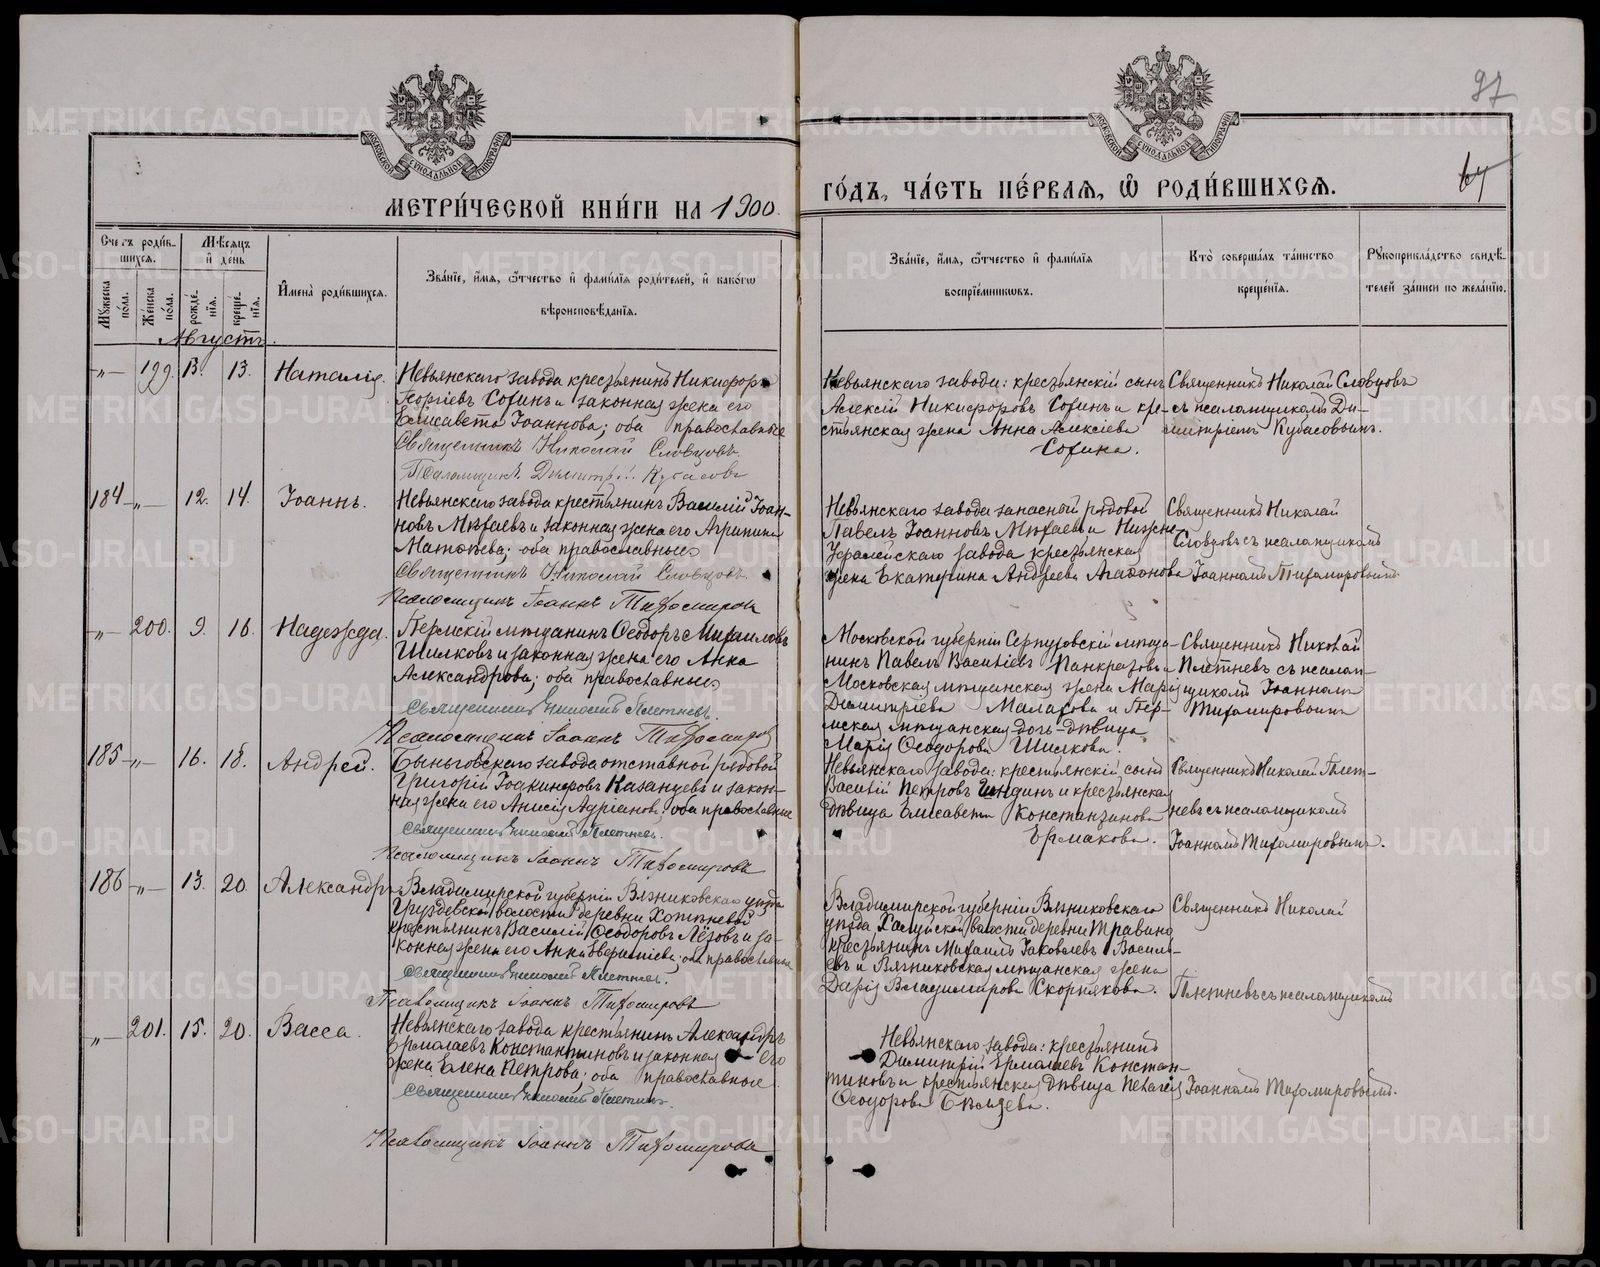 97
67
МЕТРИЧЕСКОЙ КНИГИ НА 1900
ГОДЪ, ЧАСТЬ ПЕРВАЯ, Ѡ РОДИВШИХСЯ.
МОСКОВСКОЙ СУНОДАЛЬНОЙ ТИПОГРАФІИ
МОСКОВСКОЙ СУНОДАЛЬНОЙ ТИПОГРАФІИ
Счетъ родив-
шихся.
Мужеска пола.
Женска пола.
Мѣсяцъ
и день
рожде-
нія.
креще-
нія.
Имена родившихся.
Званіе, имя, ѿчество и фамилія родителей, и какогѡ
вѣроисповѣданія.
Званіе, имя, ѿчество и фамилія
воспріемниковъ.
Кто совершалъ таинство
крещенія.
Рукоприкладство свидѣ-
телей записи по желанію.
Августъ.
-„- 199. 13. 13. Наталія.
Невьянскаго завода крестьянинъ Никифоръ
Георгіевъ Софинъ и законная жена его
Елисавета Іоаннова; оба православные
Священникъ Николай Словцовъ.
Псаломщикъ Димитрій Кубасовъ
Невьянскаго завода: крестьянскій сынъ
Алексій Никифоровъ Софинъ и кре-
стьянская жена Анна Алексіева
Софина.
Священникъ Николай Словцовъ
съ псаломщикомъ Ди-
митріемъ Кубасовымъ.
184 -„- 12. 14. Іоаннъ.
Невьянскаго завода крестьянинъ Василій Іоан-
новъ Михаевъ и законная жена его Агрипина
Матѳеева; оба православные
Священникъ Николай Словцовъ.
Псаломщикъ Іоаннъ Тихомировъ
Невьянскаго завода запасной рядовой
Павелъ Іоанновъ Михаевъ и Нижне-
Уфалейскаго завода крестьянская
жена Екатерина Андреева Агафонова
Священникъ Николай
Словцовъ съ псаломщикомъ
Іоанномъ Тихомировымъ
-„- 200. 9. 16. Надежда.
Пермскій мѣщанинъ Ѳеодоръ Михаиловъ
Шилковъ и законная жена его Анна
Александрова; оба православные
Священникъ Николай Плетневъ.
Псаломщикъ Іоаннъ Тихомировъ
Московской губерніи Серпуховскій мѣща-
нинъ Павелъ Василіевъ Панкратовъ и
Московская мѣщанская жена Марія
Димитріева Малахова и Пер-
мская мѣщанская дочь-дѣвица
Марія Ѳеодорова Шилкова.
Священникъ Николай
Плетневъ съ псалом-
щикомъ Іоанномъ
Тихомировымъ
185 -„- 16. 18. Андрей.
Быньговскаго завода отставной рядовой
Григорій Іоакинфовъ Казанцевъ и закон-
ная жена его Анисія Адріанова; оба православные
Священникъ Николай Плетневъ.
Псаломщикъ Іоаннъ Тихомировъ
Невьянскаго завода: крестьянскій сынъ
Василій Петровъ и крестьянская
дѣвица Елисавета Константинова
Ермакова.
Священникъ Николай Плет-
невъ съ псаломщикомъ
Іоанномъ Тихомировымъ.
186 -„- 13. 20. Александръ
Владимирской губерніи Вязниковскаго уѣзда
Груздевской волости деревни Хотѣневой
крестьянинъ Василій Ѳеодоровъ Лёзовъ и за-
конная жена его Анна; оба православные
Священникъ Николай Плетневъ.
Псаломщикъ Іоаннъ Тихомировъ
Владимирской губерніи Вязниковскаго
уѣзда Холуйской волости деревни Травина
крестьянинъ Михаилъ Іаковлевъ Василі-
евъ и Вязниковская мѣщанская жена
Дарія Владимирова Скорнякова.
Священникъ Николай
Плетневъ съ псаломщикомъ
-„- 201. 15. 20. Васса.
Невьянскаго завода крестьянинъ Александръ
Ермолаевъ Константиновъ и законная его
жена Елена Петрова; оба православные
Священникъ Николай Плетневъ.
Псаломщикъ Іоаннъ Тихомировъ
Невьянскаго завода: крестьянинъ
Димитрій Ермолаевъ Констан-
тиновъ и крестьянская дѣвица Пелагія
Ѳеодорова Бѣляева.
Іоанномъ Тихомировымъ.
METRIKI.GASO-URAL.RU